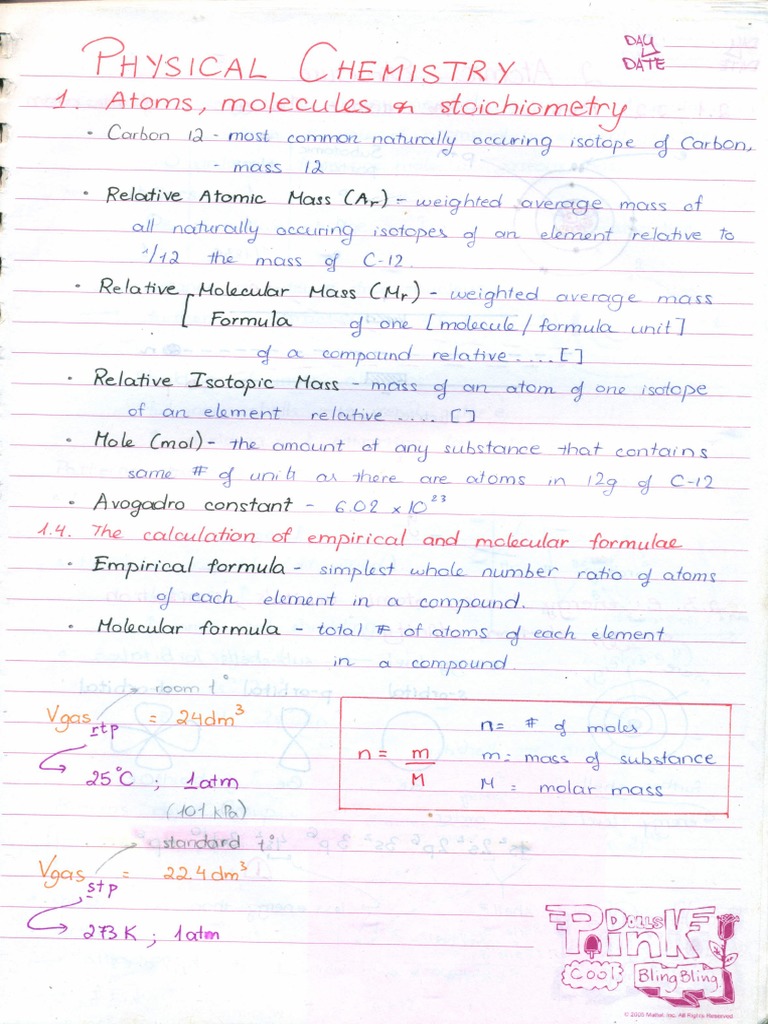 PHYSICAL CHEMISTRY
DAY
DATE
1. Atoms, molecules & stoichiometry
• Carbon 12 - most common naturally occuring isotope of Carbon,
- mass 12
• Relative Atomic Mass (Ar) - weighted average mass of
all naturally occuring isotopes of an element relative to
1/12 the mass of C-12.
• Relative [Molecular Mass (Mr) - weighted average mass
Formula of one [molecule/formula unit]
of a compound relative .... []
• Relative Isotopic Mass - mass of an atom of one isotope
of an element relative .... []
• Mole (mol) - the amount of any substance that contains
same # of units as there are atoms in 12g of C-12
• Avogadro constant - 6.02 × 10²³
1.4. The calculation of empirical and molecular formulae
• Empirical formula - simplest whole number ratio of atoms
of each element in a compound.
• Molecular formula - total # of atoms of each element
in a compound.
room t°
Vgas rtp = 24dm³
25°C ; 1atm
(101 kPa)
n = m/M
n = # of moles
m = mass of substance
M = molar mass
standard t°
Vgas stp = 22.4dm³
273K ; 1atm
DOLLS
PINK
Cool
Bling Bling
© 2005 Mattel, Inc. All Rights Reserved